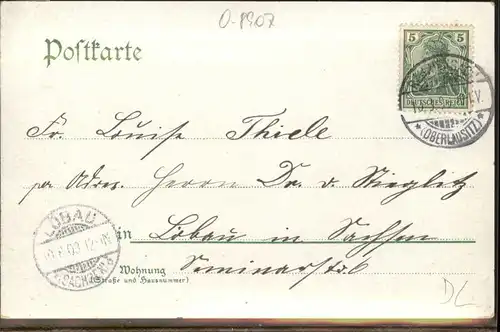 O-1907
Postkarte
5 5
DEUTSCHES REICH
*(OBERLAUSITZ)*
Fr. Louise Thiele
per Adres. Herrn Dr. v. Stieglitz
LÖBAU
(SACHSEN)
in Löbau in Sachsen
Wohnung Seminarstr. 6
(Straße und Hausnummer)
DL